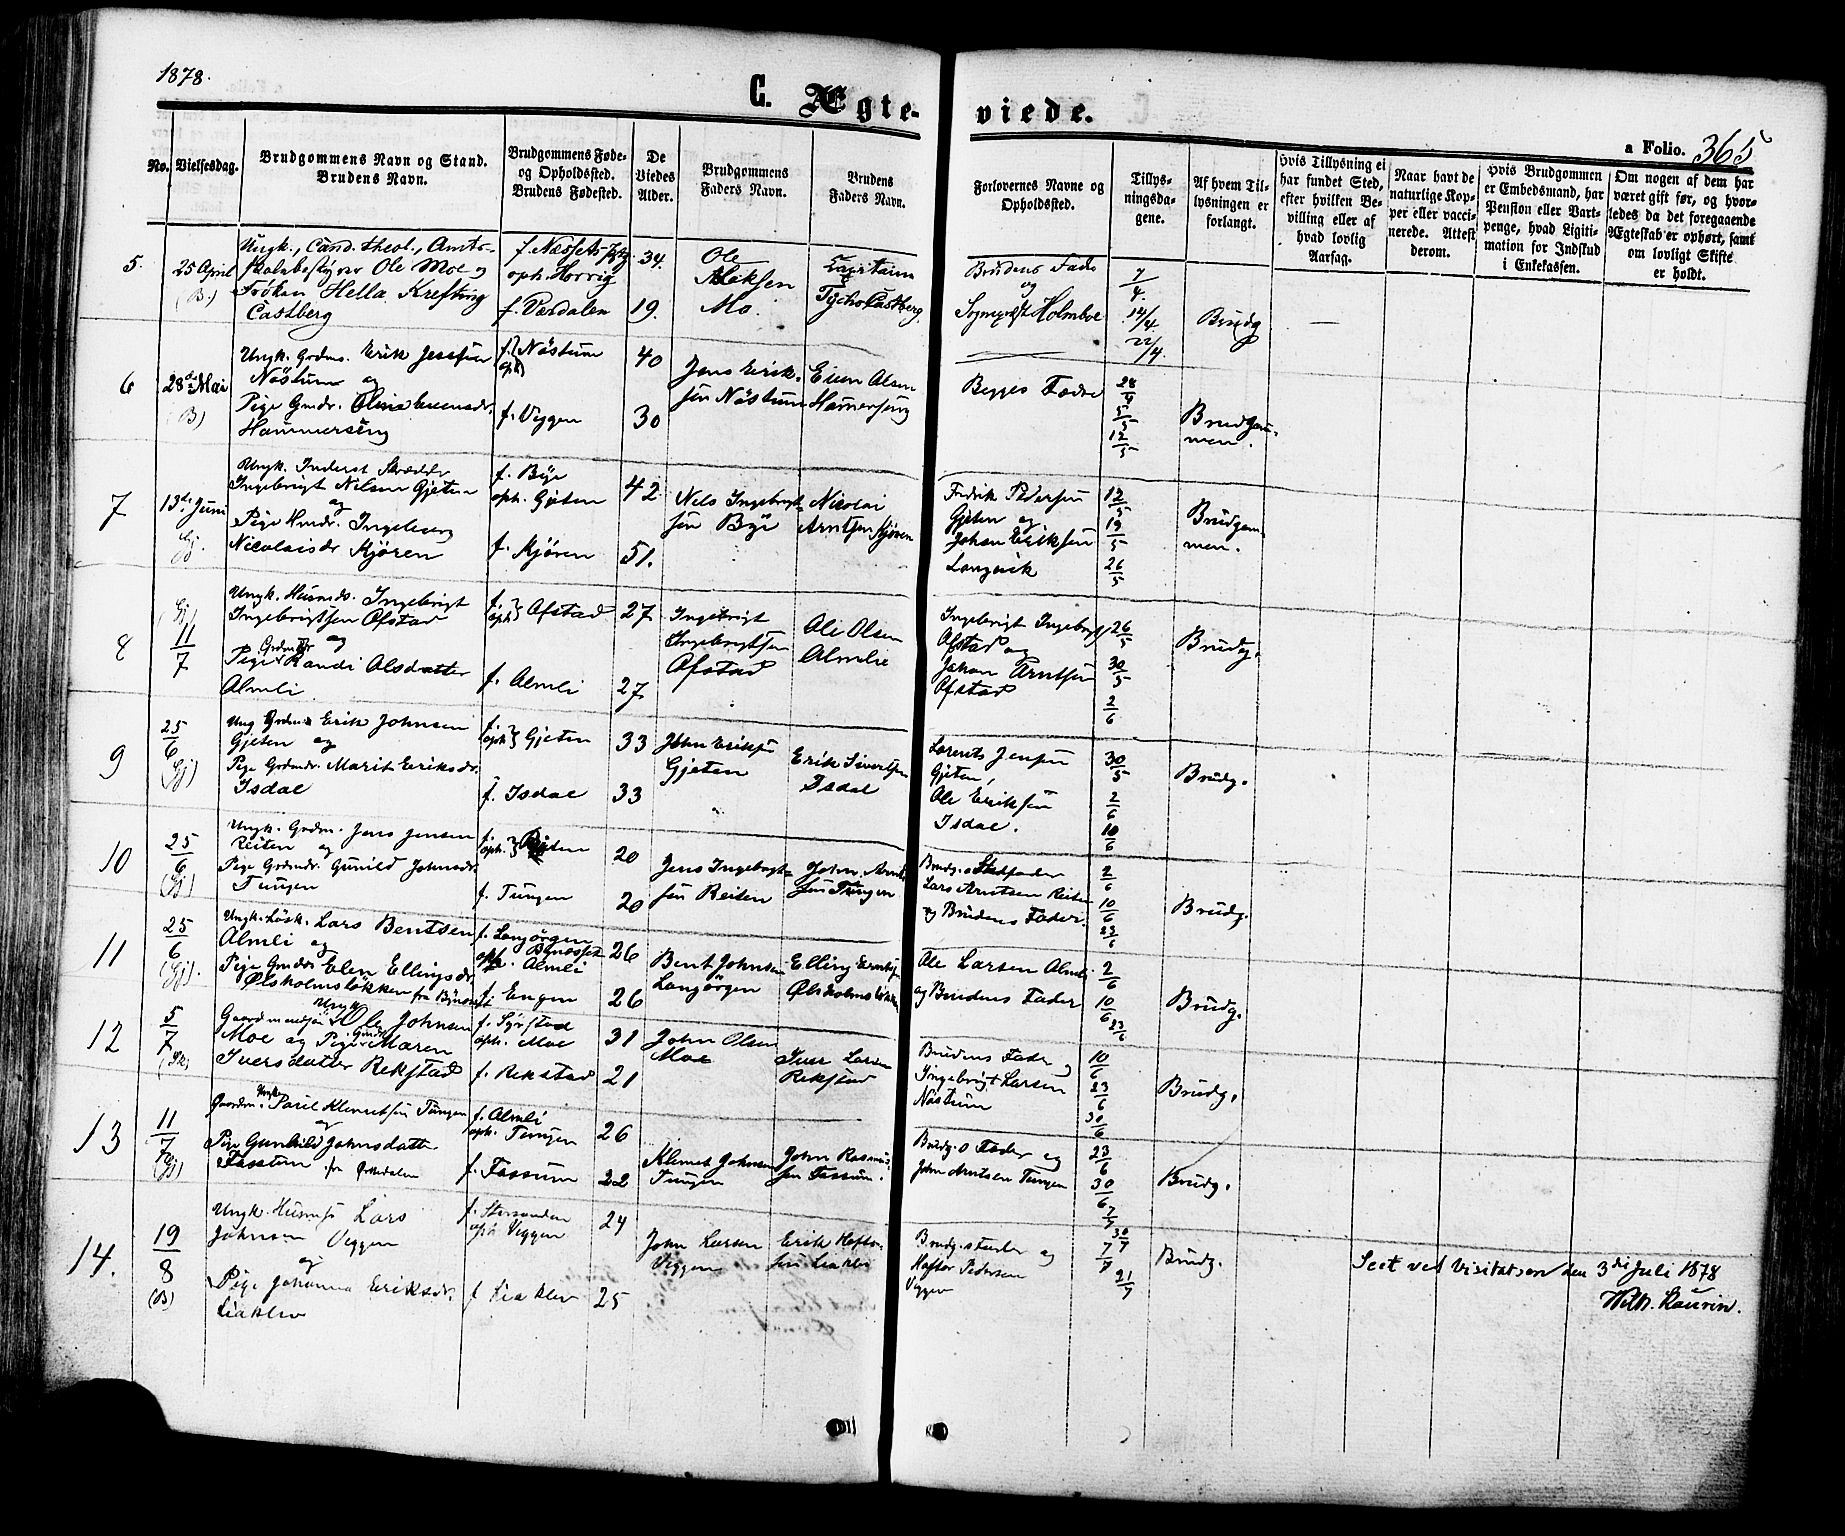 1878.
C. Ægte-
viede.
a Folio. 365
No.
Vielsesdag.
Brudgommens Navn og Stand.
Brudens Navn.
Brudgommens Føde-
og Opholdssted.
Brudens Fødested.
De
Viedes
Alder.
Brudgommens
Faders Navn.
Brudens
Faders Navn.
Forlovernes Navne og
Opholdssted.
Tillys-
ningsda-
gene.
Af hvem Til-
lysningen er
forlangt.
Hvis Tillysning ei
har fundet Sted,
efter hvilken Be-
villing eller af
hvad lovlig
Aarsag.
Naar havt de
naturlige Kop-
per eller vacci-
nerede. Attest
derom.
Hvis Brudgommen
er Embedsmand, har
Pension eller Vart-
penge, hvad Ligiti-
mation for Indskud
i Enkekassen.
Om nogen af dem har
været gift før, og hvor-
ledes da det foregaaende
Ægteskab er ophørt, samt
om lovligt Skifte
er holdt.
5.
25 April
(B.)
Ungk., Cand. theol., Amts-
skolebestyrer Ole Moe og
Frøken Hella Krefting
Castberg
f. Næssets
oph. Horrig
f. Værdalen
34.
19.
Ole
Mo.
Capitain
Tycho Castberg
Brudens Fader
og
Sognepræst Holmboe
7/4.
14/4.
22/4.
Brudg
—
6
28de Mai
(B)
Ungk. Grdm. Erik Jenssen
Nöstum og
Pige Gmdr. Olina Eriensdr.
Hammerseng
f. } Nöstum
oph }
f. Veggen
40
30
Jens Erik-
sen Nöstum
Olsen
Hamerseng
Begges Fædre
28/4
5/5
12/5
Brudgom-
men.
7
13de Juni
Gj.
Ungk. Inderst Skrædder
Ingebrigt Nilsen Gjeten
og
Pige Hmdr. Ingeborg
Nicolaisdr Kjøren
f. Bye
oph. Gjeten
f. Kjøren
42.
51.
Nels Ingebrigt-
sen Bye
Nicolai
Arntsen Kjøren
Fredrik Pedersen
Gjeten og
Johan Eriksen
Langvik
12/5
19/5
26/5
Brudgom-
men.
8
(Gj)
11/7
Ungk. Husmds. Ingebrigt
Ingebrigtsen Ofstad
og
Pige Grdmdr Randi Olsdatter
Almli
f. } Ofstad
oph }
f. Almli
27
27
Ingebrigt
Ingebrigtsen
Ofstad
Ole Olsen
Almlie
Ingebrigt Ingebrigts
Ofstad og
Johan Arntsen
Ofstad
26/5
30/5
2/6
Brudg.
9
25/6
(Gj)
Ung Grdm Erik Johnsen
Gjeten og
Pige Grdmdr. Marit Eriksdr.
Isdal
f. } Gjeten
oph }
f. Isdal
33
33
John Eriksen
Gjeten
Erik Sivertsen
Isdal
Lorents Jensen
Gjeten,
Ole Eriksen
Isdal.
30/5
2/6
10/6
Brudg.
10
25/6
(Gj)
Ungk. Grdm. Jens Jensen
Reiten og
Pige Grdmdr. Gunild Johnsdr.
Tungen
f. } Reiten
oph. }
f. Tungen
20
20
Jens Ingebrigt-
sen Reiten
John Arnt-
sen Tungen
Brudg. s Stedfader
Lars Arntsen Reiten
og Brudens Fader.
2/6
10/6
23/6
Brudg.
11
25/6
(Gj).
Ungk. Løsk. Lars Bentsen
Almli og
Pige Gmdr Elen Ellingsdr
Ølsholmsløkken fra Bynesset
f. Langørgen
Bynesset
oph. Almli
f. Engen
26
26
Bent Johnsen
Langørgen
Elling Arntsen
Ølsholmsløkken
Ole Larsen Almli
og Brudens Fader
2/6
10/6
23/6
Brudg.
12
5/7
(Sk)
Gaardmandssøn Ungk. Ole Johnsen
Moe og Pige Gmdr Maren
Iversdatter Rekstad
f. Syrstad
oph. Moe
f. Rekstad
31
21
John Olsen
Moe
Iver Larsen
Rekstad
Brudens Fader og
Ingebrigt Larsen
Nöstum
10/6
23/6
30/6
Brudg.
13
11/7
(Gj)
Gaardm. Ungk. Paul Klemetsen Tungen
og
Pige Gunhild Johnsdatter
Fossum fra Orkedalen
f. Almli
oph. Tungen
f. Fossum
26
22
Klemet Johnsen
Tungen
John Rasmus-
sen Fossum.
Brudg. s Fader og
John Arntsen Tungen
23/6
30/6
7/7
Brudg.
14.
19/8
(B)
Ungk. Husms Lars
Johnsen Veggen
og
Pige Johanna Eriksdr.
Liaklev
f. Storsanden
oph Veggen
f Liaklev
24
25
John Larsen
Veggen
Erik Haftor-
sen Liaklev
Brudg. s Fader og
Haftor Pedersen
Veggen
7/7
21/7
Brudg.
Seet ved Visitatsen den 3die Juli 1878
Wilh. Laurin.